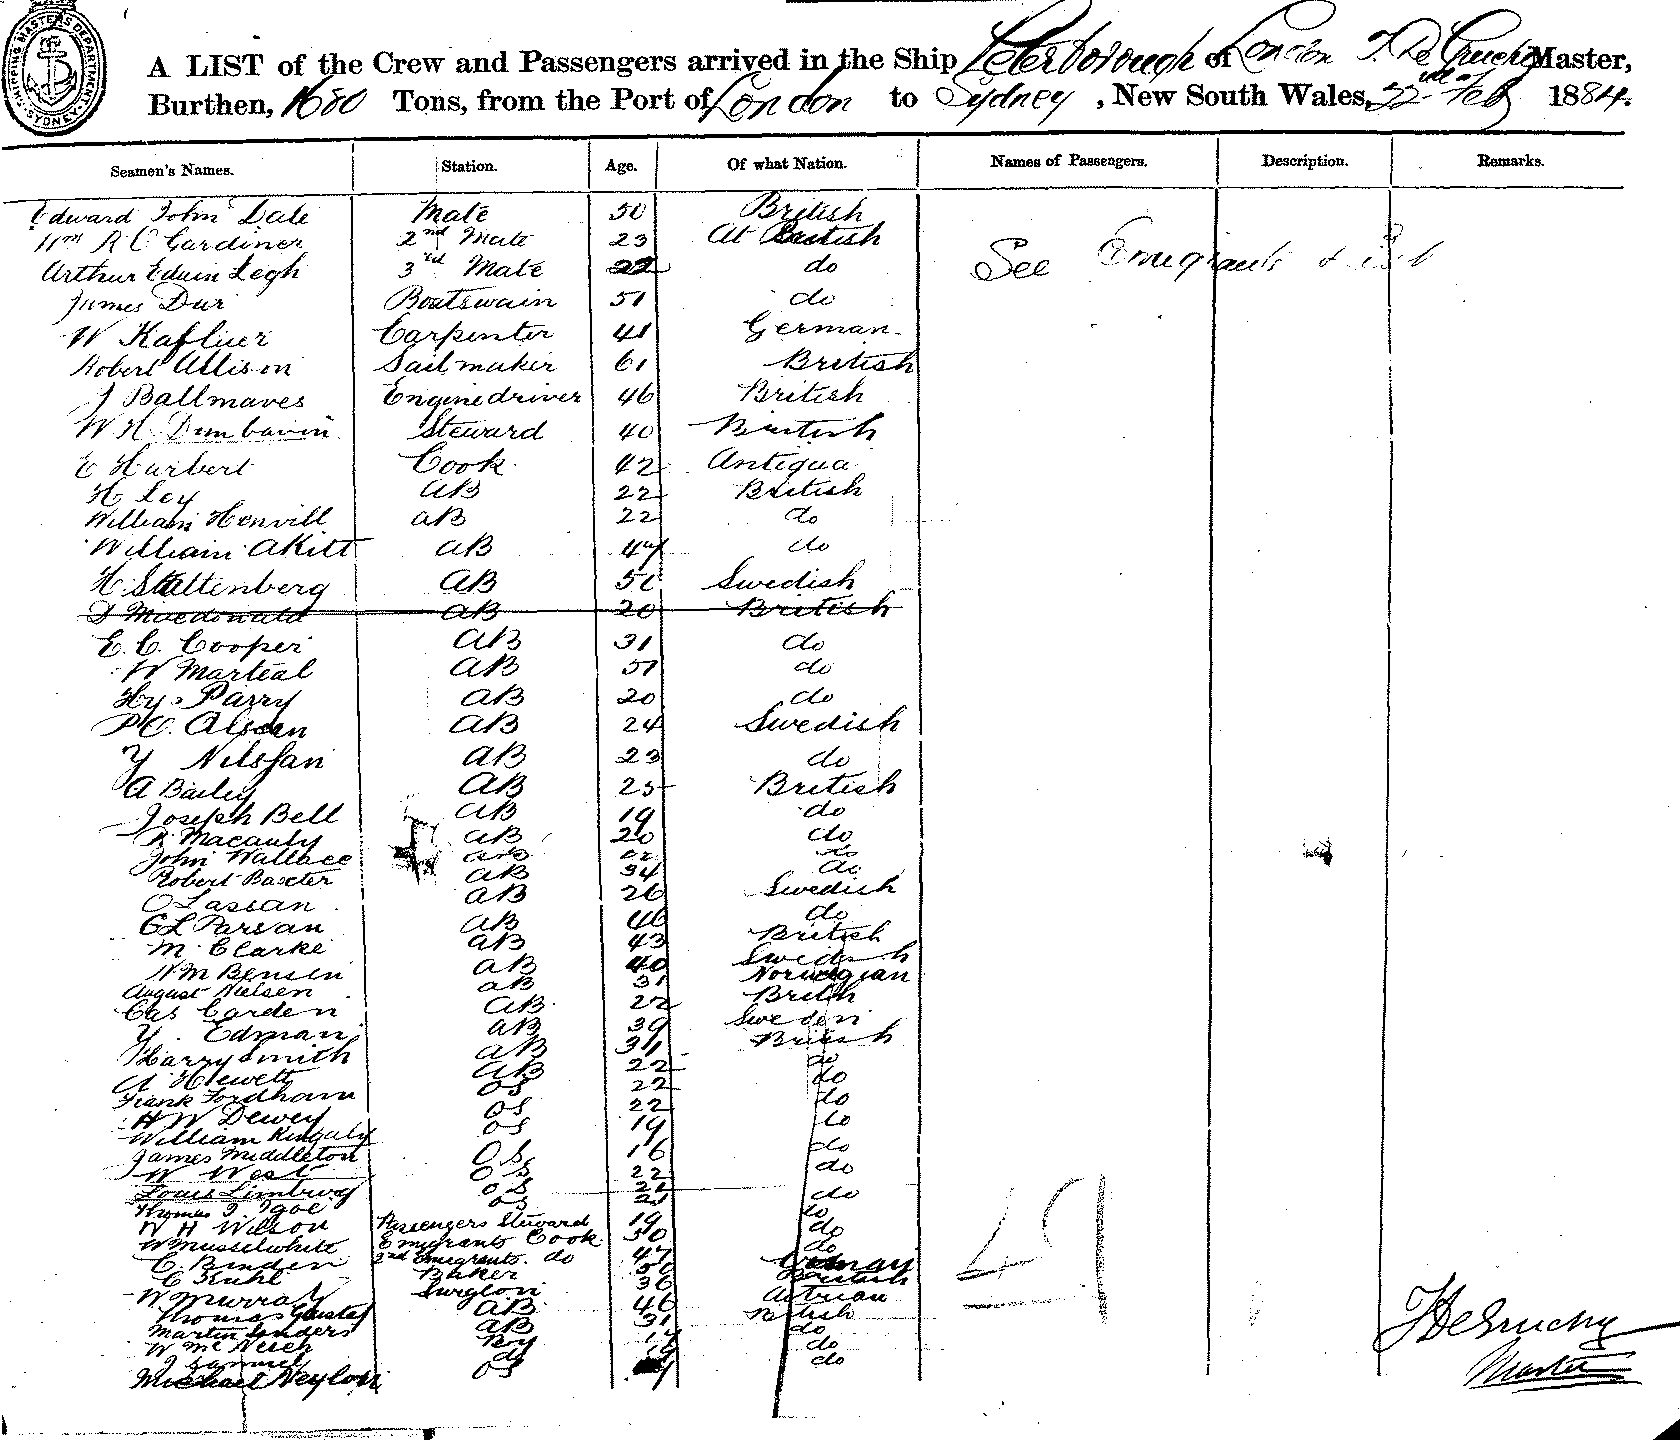 SHIPPING MASTERS DEPARTMENT SYDNEY
A LIST of the Crew and Passengers arrived in the Ship Peterborough of London F. De Gruchy Master,
Burthen, 1680 Tons, from the Port of London to Sydney, New South Wales, 22nd of Feb 1884.
Seamen's Names. Station. Age. Of what Nation. Names of Passengers. Description. Remarks.
Edward John Dale Mate 50 British
Wm R C Gardiner 2nd Mate 23 British See Emigrants
Arthur Edwin Legh 3rd Mate 22 do
James Dur Boatswain 51 do
W Kafluer Carpenter 41 German
Robert Allison Sailmaker 61 British
J Ballmaves Enginedriver 46 British
W H Dumbavin Steward 40 British
E Harbert Cook 42 Antigua
H Ley AB 22 British
William Henvill AB 22 do
William Akitt AB 47 do
H Stattenberg AB Swedish
D Macdonald AB 20 British
E. C. Cooper AB 31 do
W Marteal AB 51 do
Hy Parry AB 20 do
P C. Alsean AB 24 Swedish
Y Nilsfan AB 23 do
A Bailey AB 25 British
Joseph Bell AB 19 do
R Macauly AB 20 do
John Wallace AB do
Robert Baxter AB 34 do
O Lassan AB 26 Swedish
C L Parsan AB 46 do
M. Clarke AB 43 British
N M Bensen AB 40 Swedish
August Nielsen AB 31 Norwegian
Cas Carden AB 22 Britih
Y. Edman AB 39 Sweden
Harry Smith AB British
A Hewett AB 22 do
Frank Fordham OS 22 do
H W Dewey OS 22 do
William OS 19 do
James Middleton OS 16 do
W West OS 22 do
Louis OS
Thomas J. Igoe OS do
W H Wilson Passengers Steward 19 do
W Musselwhite Emigrants Cook 50 do
C Binden 2nd Emigrants do 47 do
C Kuhl Baker
W Murray Surgeon 36 British
Thomas AB 46 Astrian
Martin Sanders AB 31 British
W Mc Neich Boy do
J Sammel do do
Michael Neylon OS do
F De Gruchy
Master